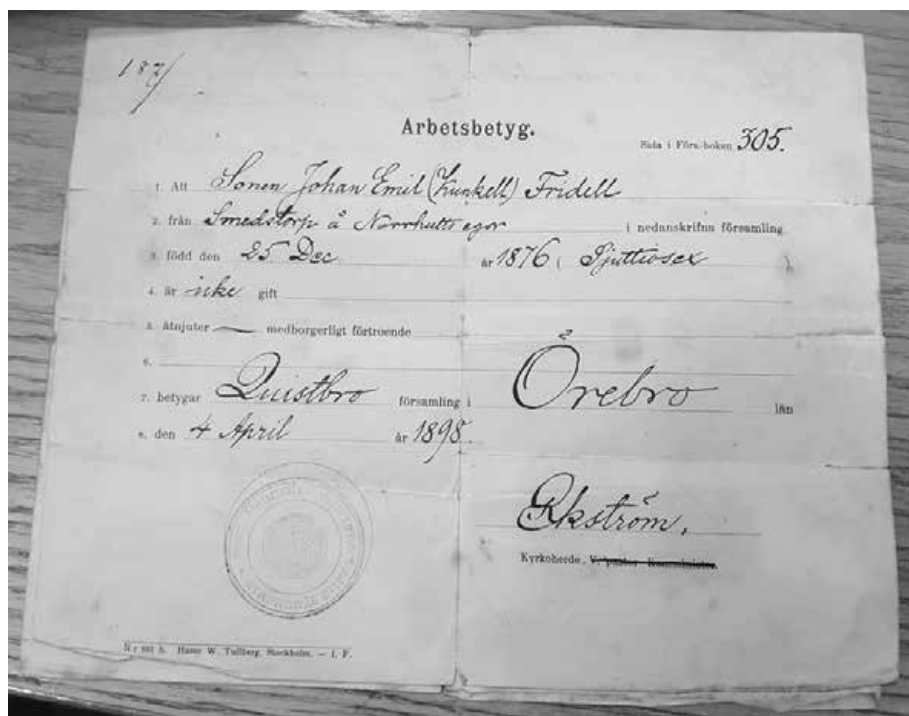 187/
Arbetsbetyg.
Sida i Förs.-boken 305.
1. Att Sonen Johan Emil (Kunkell) Fridell
2. från Smedstorp å Norrhutts egor i nedanskrifna församling
3. född den 25 Dec. år 1876 ( Sjuttiosex )
4. är icke gift
5. åtnjuter — medborgerligt förtroende
6.
7. betygar Quistbro församling i Örebro län
8. den 4 April år 1898.
Ekström,
Kyrkoherde,
h. Hasse W. Tullberg, Stockholm. — I. F.